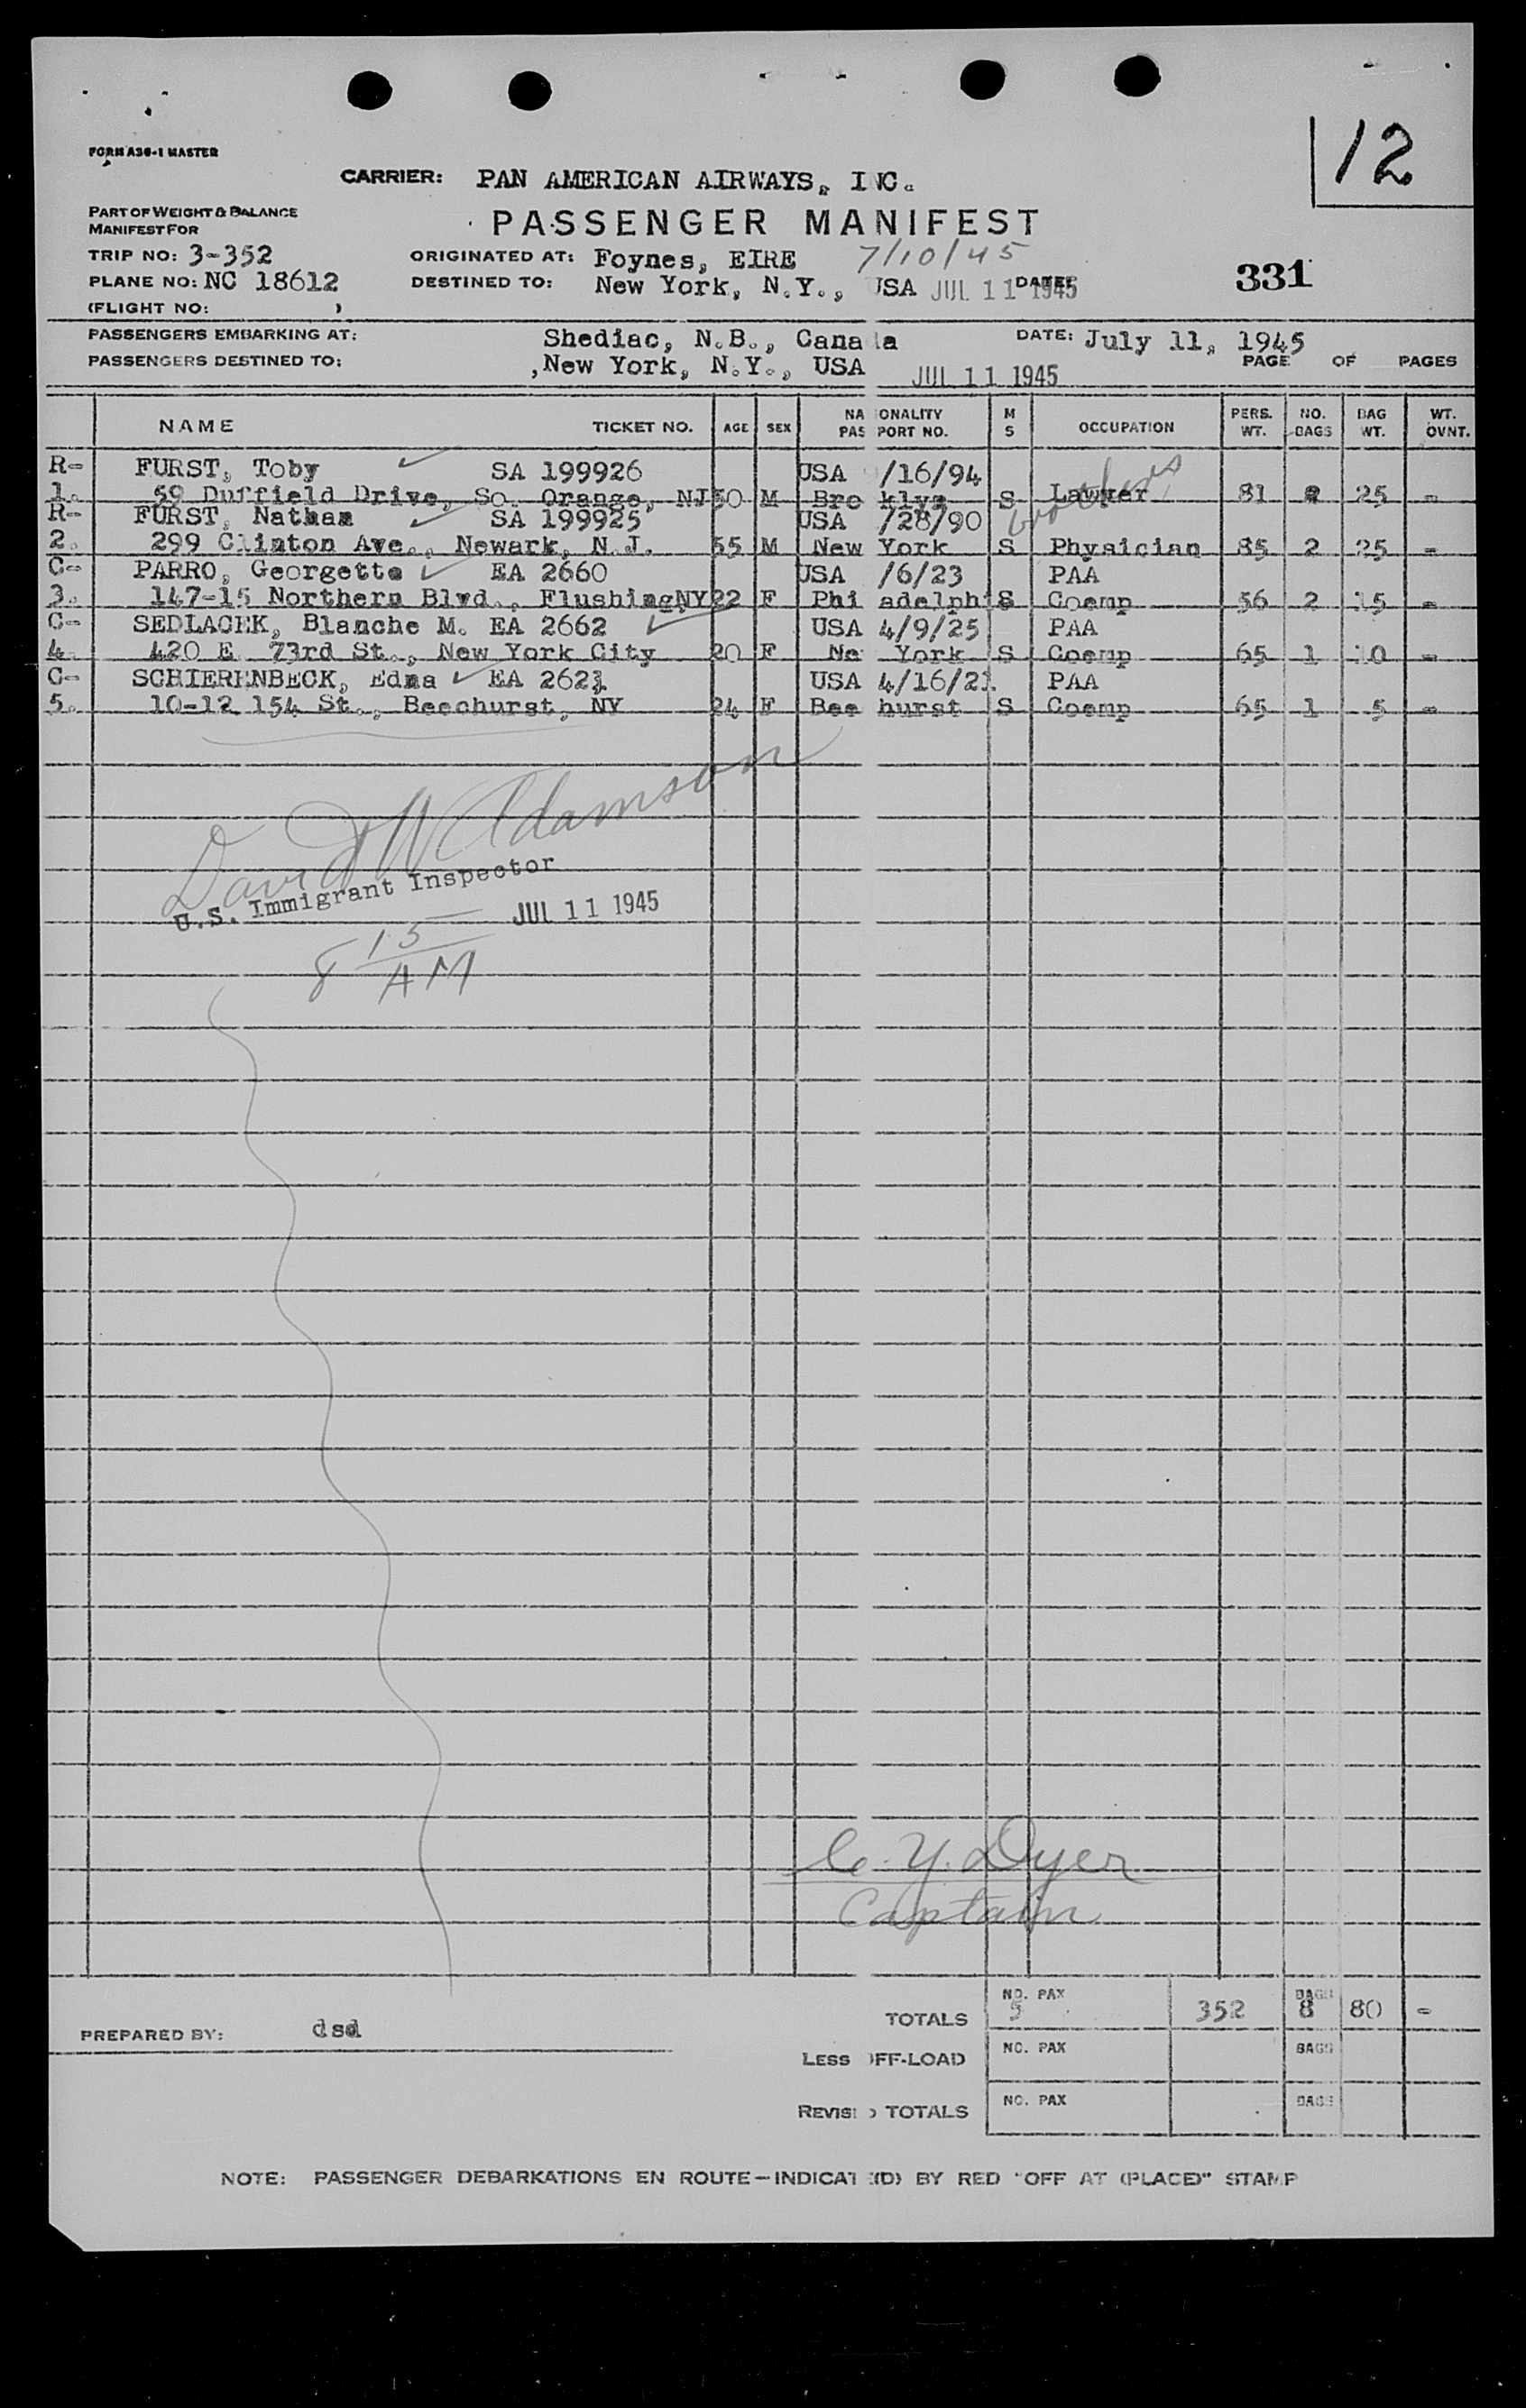 12
FORM A36-1 MASTER
CARRIER: PAN AMERICAN AIRWAYS, INC.
PART OF WEIGHT & BALANCE
MANIFEST FOR
PASSENGER MANIFEST
TRIP NO: 3-352 ORIGINATED AT: Foynes, EIRE 7/10/45
PLANE NO: NC 18612 DESTINED TO: New York, N.Y., USA JUL 11 1945 DATE: 331
(FLIGHT NO: )
PASSENGERS EMBARKING AT: Shediac, N.B., Canada DATE: July 11, 1945
PASSENGERS DESTINED TO: ,New York, N.Y., USA JUL 11 1945 PAGE OF PAGES
NAME TICKET NO. AGE SEX NA ONALITY PAS PORT NO. M S OCCUPATION PERS. WT. NO. BAGS BAG WT. WT. OVNT.
R- FURST, Toby SA 199926 USA /16/94
1. 59 Duffield Drive, So. Orange, NJ 50 M Bro klyn S Lawyer 81 2 25 -
brothers
R- FURST, Nathan SA 199925 USA /28/90
2. 299 Clinton Ave., Newark, N.J. 55 M New York S Physician 85 2 25 -
C- PARRO, Georgette EA 2660 USA /6/23 PAA
3. 147-15 Northern Blvd., Flushing NY 22 F Phi adelphia S Coemp 56 2 15 -
C- SEDLACEK, Blanche M. EA 2662 USA 4/9/25 PAA
4. 420 E 73rd St., New York City 20 F Ne York S Coemp 65 1 10 -
C- SCHIERENBECK, Edna EA 2621 USA 4/16/21 PAA
5. 10-12 154 St., Beechurst, NY 24 F Bee hurst S Coemp 65 1 5 -
David W Adamson
U.S. Immigrant Inspector
JUL 11 1945
8 15 AM
C. Y. Dyer
Captain
TOTALS NO. PAX 5 352 BAGS 8 80 -
PREPARED BY: dsd
LESS OFF-LOAD NO. PAX BAGS
REVISED TOTALS NO. PAX BAGS
NOTE: PASSENGER DEBARKATIONS EN ROUTE—INDICAT (D) BY RED "OFF AT (PLACE)" STAMP